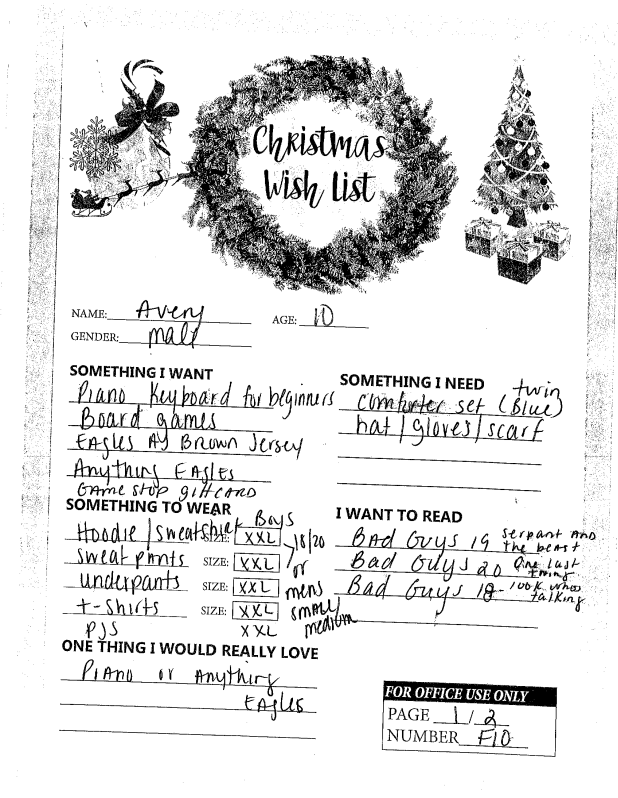 Christmas
Wish List
NAME: Avery AGE: 10
GENDER: male
SOMETHING I WANT
Piano Keyboard for beginners
Board games
EAgles AJ Brown Jersey
Anything EAgles
GAME stop giftCARD
SOMETHING I NEED
twin
comforter set (Blue)
hat / gloves / scarf
SOMETHING TO WEAR
Hoodie / sweatshirt SIZE: XXL Boys 18/20
sweat pants SIZE: XXL or
underpants SIZE: XXL mens
t-shirts SIZE: XXL small/
PJS XXL medium
I WANT TO READ
BAd Guys 19 serpant AND the beast
Bad Guys 20 One last thing
Bad Guys 18 - look who's talking
ONE THING I WOULD REALLY LOVE
PiAno or Anything
EAgles
FOR OFFICE USE ONLY
PAGE 1/2
NUMBER F10